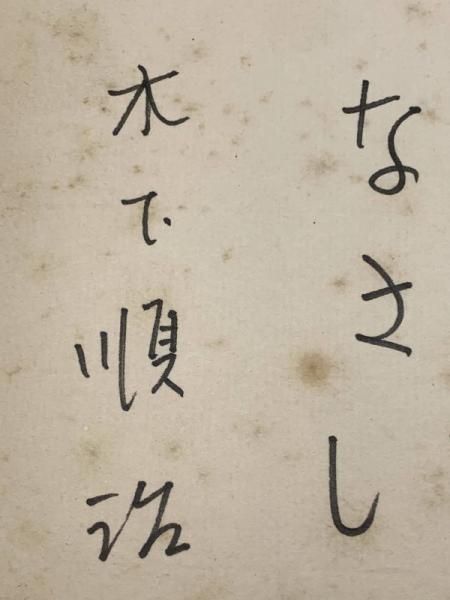 なさし
木下順治